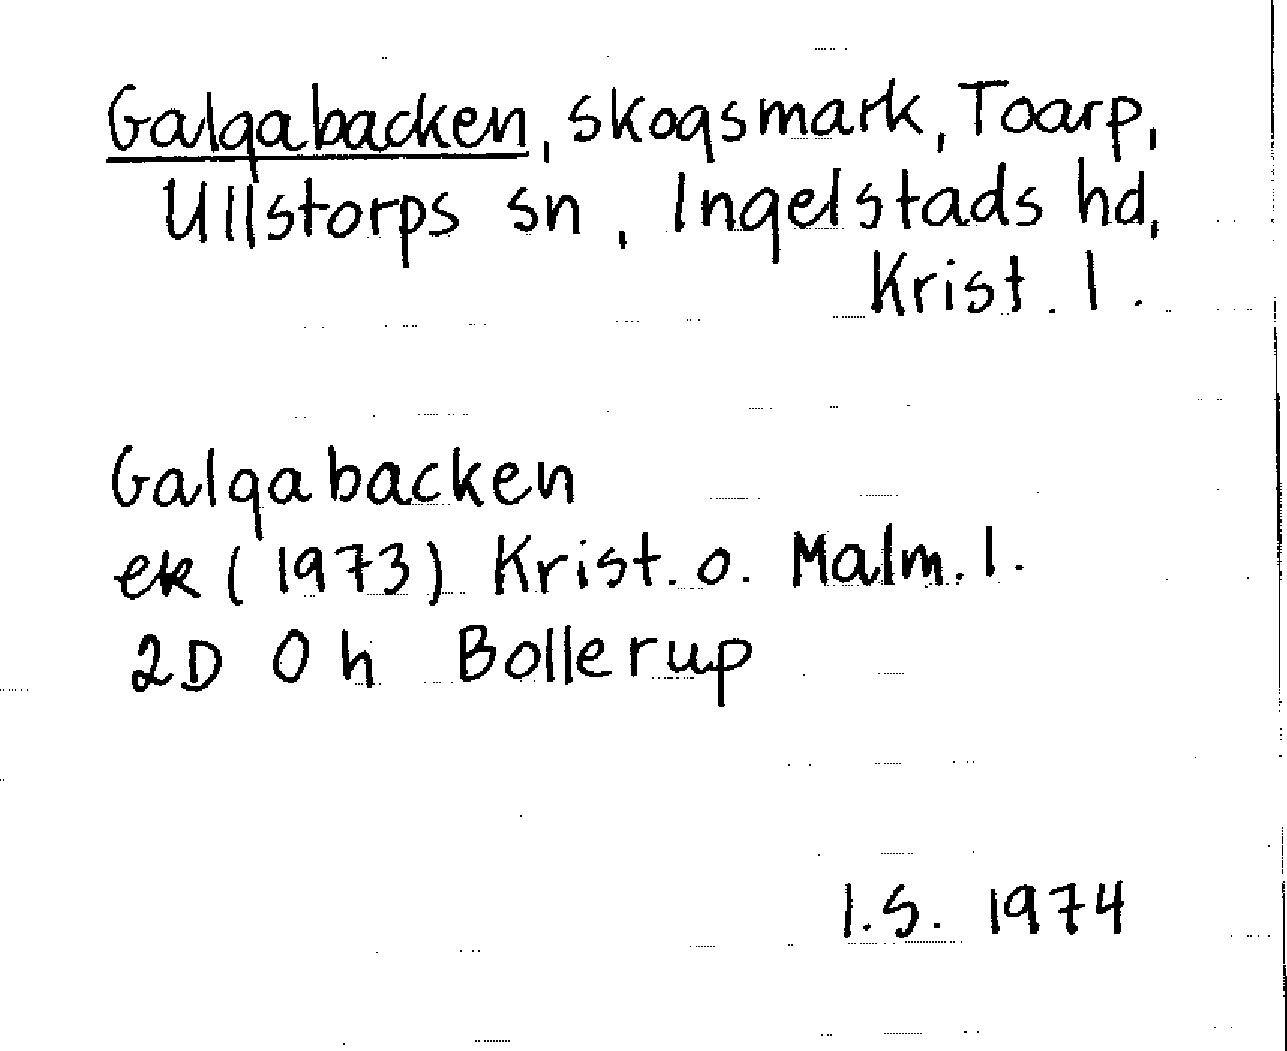 Galgabacken, skogsmark, Toarp,
Ullstorps sn, Ingelstads hd,
Krist. l.
Galgabacken
ek (1973) Krist. o. Malm. l.
2D 0 h Bollerup
I.S. 1974